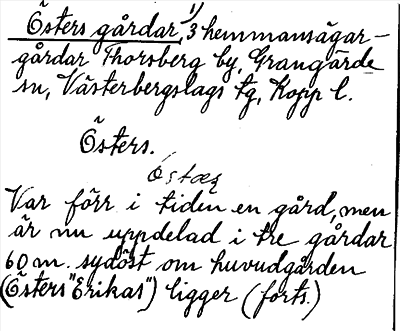 Östers gårdar,¹⁾ 3 hemmansägar-
gårdar Thorsberg by, Grangärde
sn, Västerbergslags tg, Kopp l.
Östers.
Östæʂ
Var förr i tiden en gård, men
är nu uppdelad i tre gårdar
60 m. sydöst om huvudgården
(Östers "Erikas") ligger (forts.)